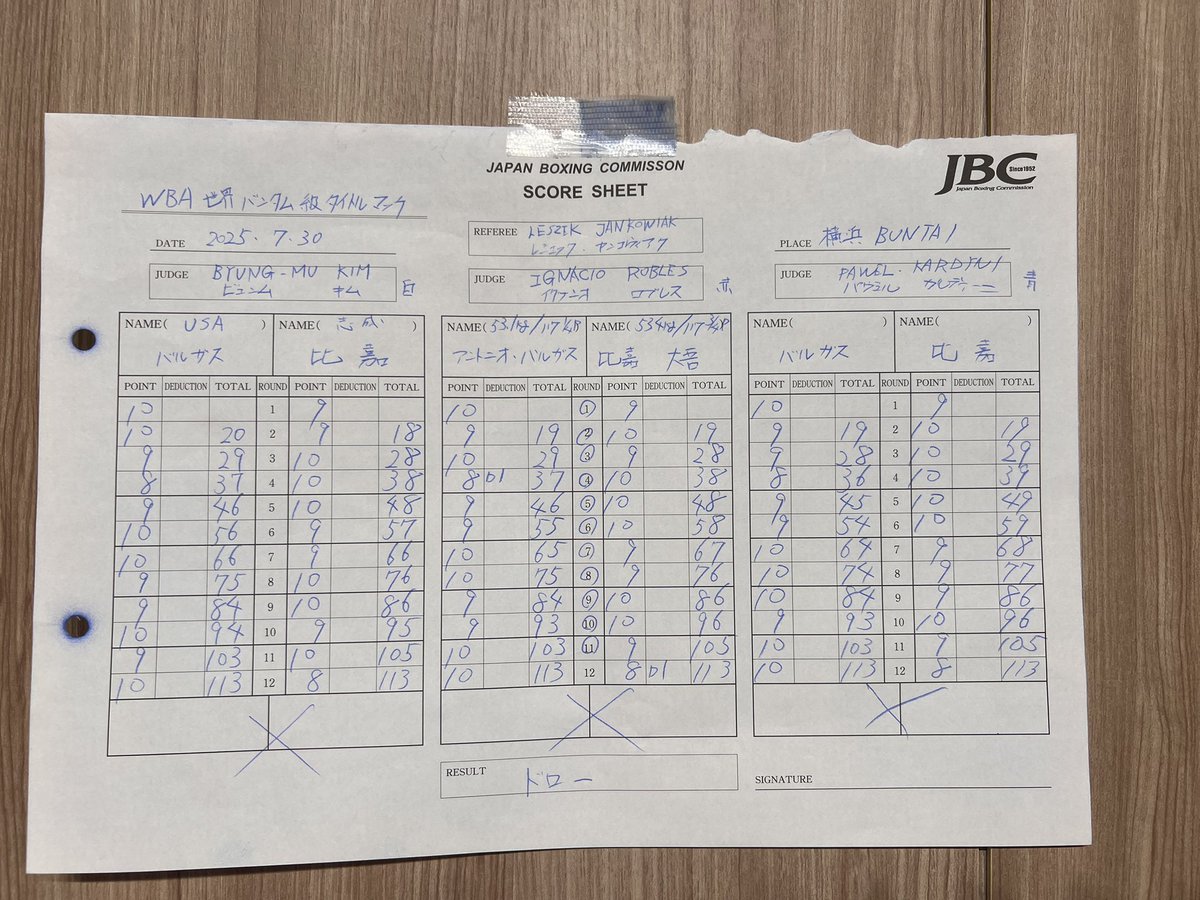 JAPAN BOXING COMMISSON
SCORE SHEET
JBC Since1952
Japan Boxing Commission
WBA 世界 バンタム級 タイトルマッチ
DATE 2025.7.30
REFEREE LESZEK JANKOWIAK
PLACE 横浜 BUNTAI
JUDGE BYUNG-MU KIM 白
ビュンム キム
JUDGE IGNACIO ROBLES 赤
イグナシオ ロブレス
JUDGE PAWEL KARDYNI 青
パウエル カルディーニ
NAME( USA ) NAME( 志成 )
バルガス 比嘉
POINT DEDUCTION TOTAL ROUND POINT DEDUCTION TOTAL
10 1 9
10 20 2 9 18
9 29 3 10 28
8 37 4 10 38
9 46 5 10 48
10 56 6 9 57
10 66 7 9 66
9 75 8 10 76
9 84 9 10 86
10 94 10 9 95
9 103 11 10 105
10 113 12 8 113
NAME( 53.1kg/117 ) NAME( 53.4kg/117 )
アントニオ・バルガス 比嘉 大吾
POINT DEDUCTION TOTAL ROUND POINT DEDUCTION TOTAL
10 ① 9
9 19 ② 10 19
10 29 ③ 9 28
8 D1 37 ④ 10 38
9 46 ⑤ 10 48
9 55 ⑥ 10 58
10 65 ⑦ 9 67
10 75 ⑧ 9 76
9 84 ⑨ 10 86
9 93 ⑩ 10 96
10 103 ⑪ 9 105
10 113 12 8 D1 113
NAME( ) NAME( )
バルガス 比嘉
POINT DEDUCTION TOTAL ROUND POINT DEDUCTION TOTAL
10 1 9
9 19 2 10 19
9 28 3 10 29
8 36 4 10 39
9 45 5 10 49
9 54 6 10 59
10 64 7 9 68
10 74 8 9 77
10 84 9 9 86
9 93 10 10 96
10 103 11 9 105
10 113 12 8 113
RESULT ドロー
SIGNATURE